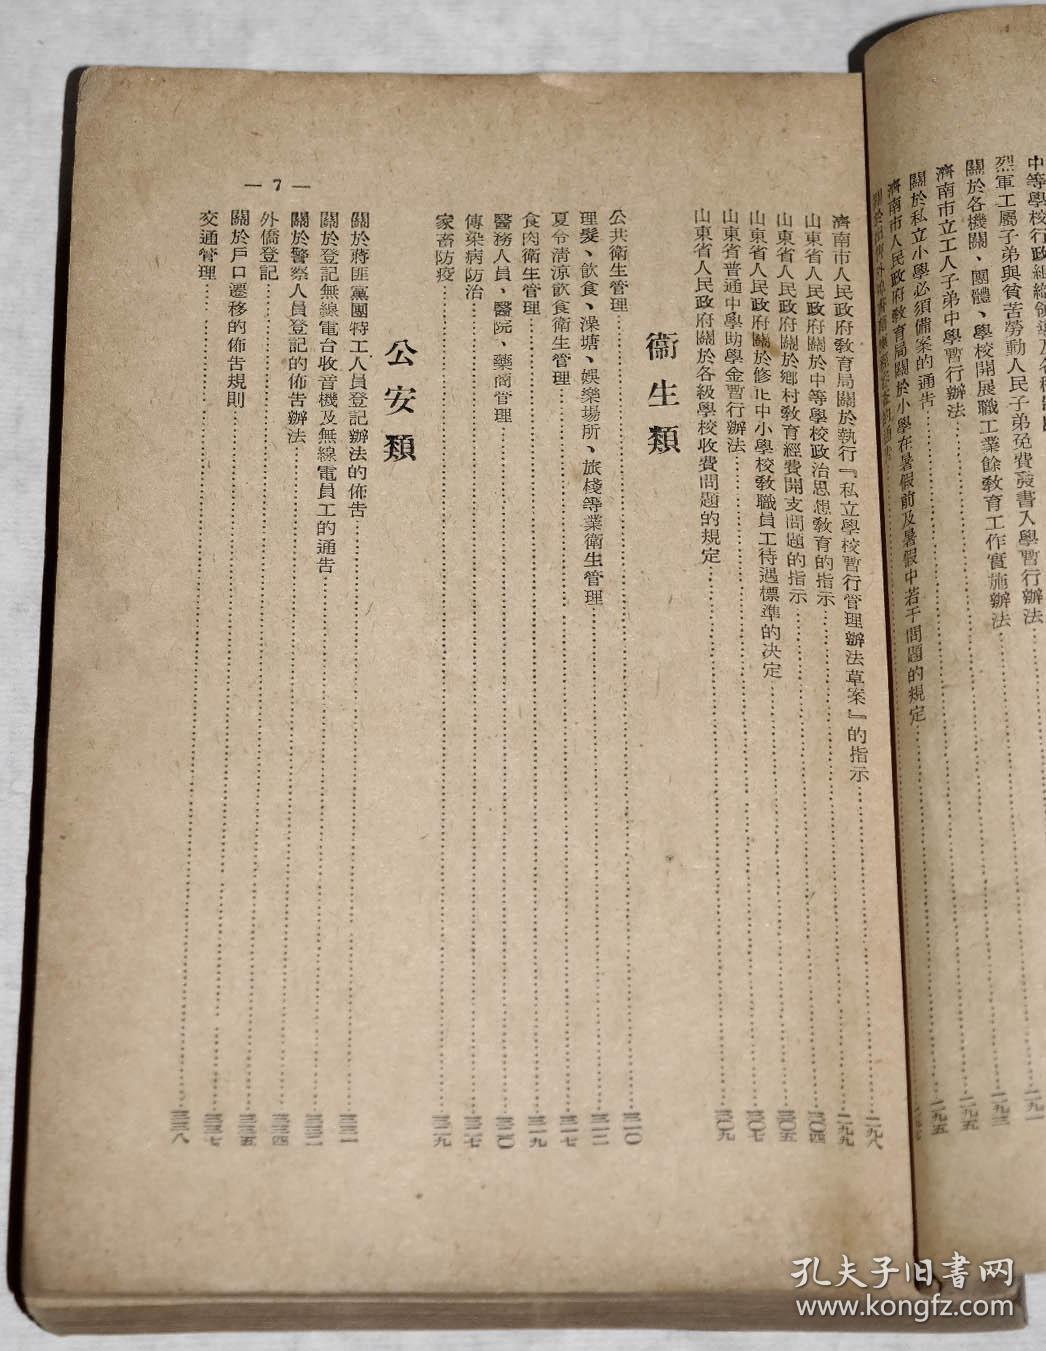 烈軍工屬子弟與貧苦勞動人民子弟免費發書入學暫行辦法……二九一
關於各機關、團體、學校開展職工業餘教育工作實施辦法……二九三
濟南市立工人子弟中學暫行辦法……二九五
關於私立小學必須備案的通告……二九五
濟南市人民政府教育局關於小學在暑假前及暑假中若干問題的規定……
濟南市人民政府教育局關於執行『私立學校暫行管理辦法草案』的指示……二九八
山東省人民政府關於中等學校政治思想教育的指示……二九九
山東省人民政府關於鄉村教育經費開支問題的指示……三〇四
山東省人民政府關於修正中小學校教職員工待遇標準的決定……三〇五
山東省普通中學助學金暫行辦法……三〇七
山東省人民政府關於各級學校收費問題的規定……三〇九
衞生類
公共衛生管理……三一〇
理髮、飲食、澡塘、娛樂場所、旅棧等業衛生管理……三一二
夏令清涼飲食衛生管理……三一七
食肉衛生管理……三一九
醫務人員、醫院、藥商管理……三二〇
傳染病防治……三二七
家畜防疫……三二九
公安類
關於蔣匪黨團特工人員登記辦法的佈告……三三一
關於登記無線電台收音機及無線電員工的通告……三三二
關於警察人員登記的佈告辦法……三三四
外僑登記……三三五
關於戶口遷移的佈告規則……三三七
交通管理……三三八
— 7 —
孔夫子旧書网
www.kongfz.com